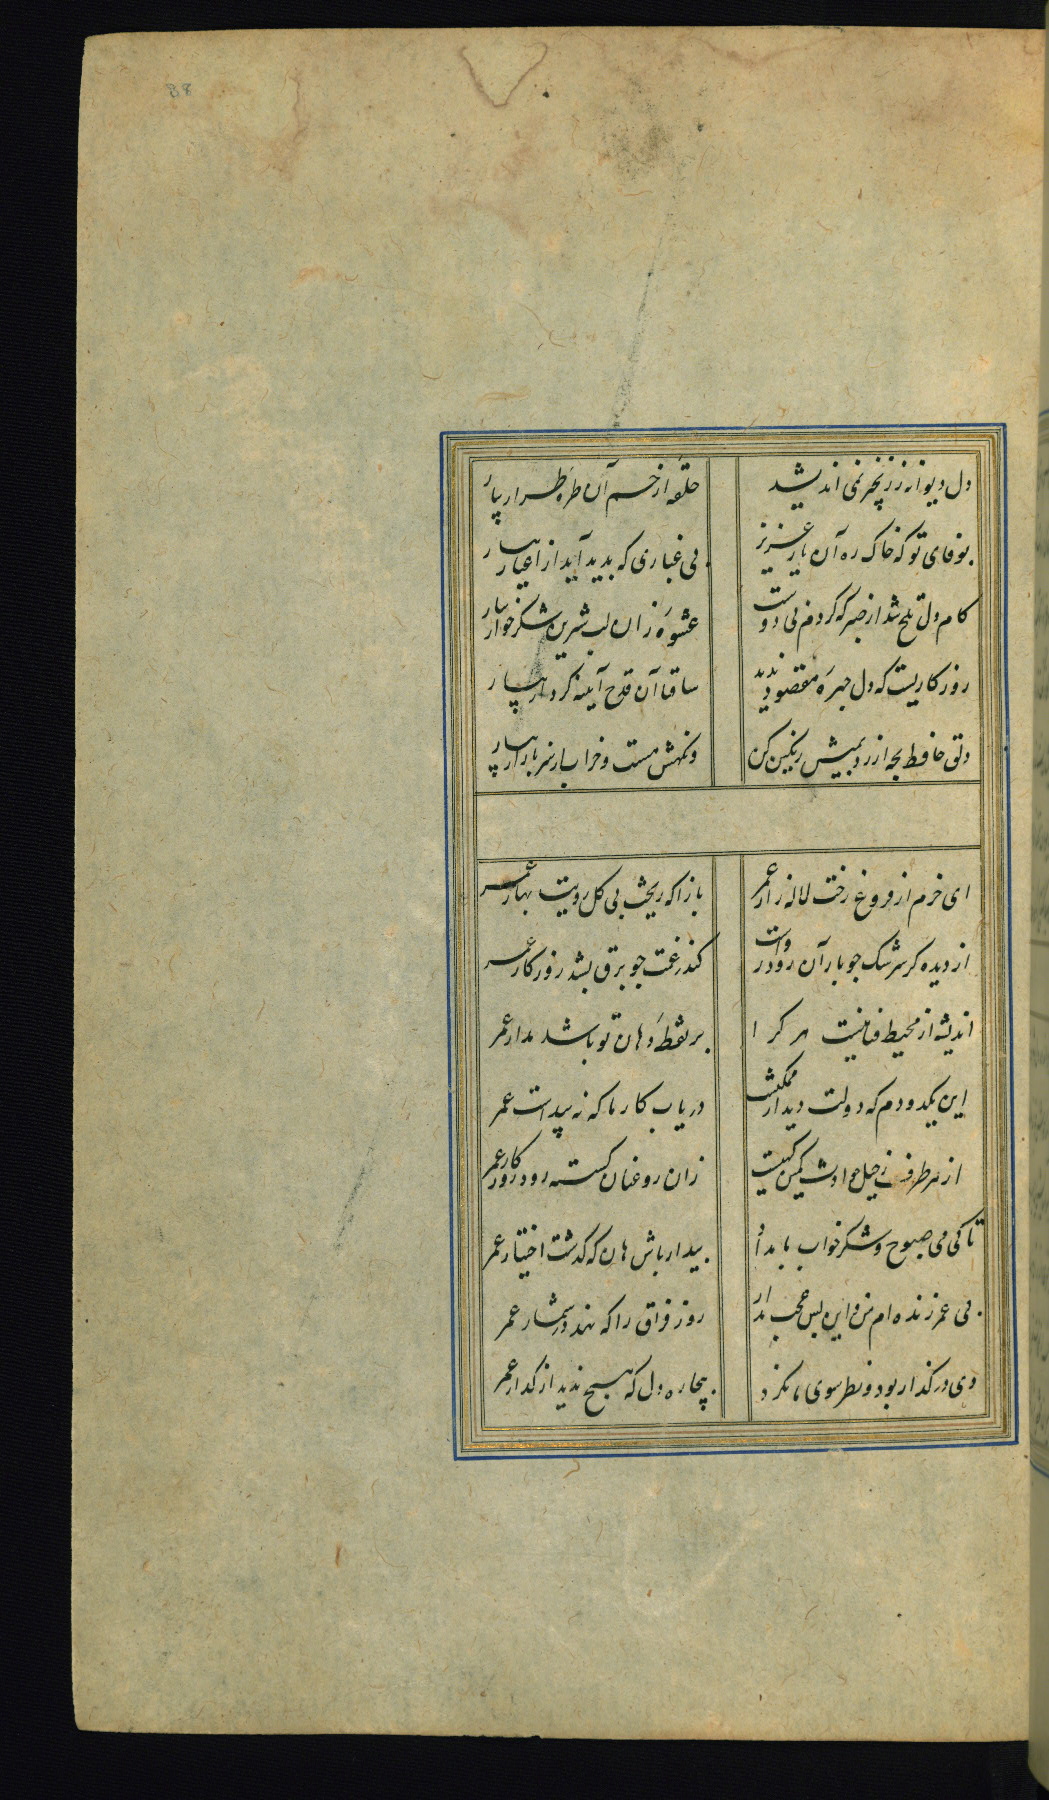 88
دل دیوانه ز زنجیر نمی اندیشد حلقهٔ از خم آن طرهٔ طرار بیار
بوفای تو که خاک ره آن یار عزیز بی غباری که بدید آید از اغیار بیار
کام دل تلخ شد از صبر که کردم بی دوست عشوهٔ زان لب شیرین شکرخوار بیار
روزکاریست که دل چهرهٔ مقصود ندید ساقیا آن قدح آینه کردار بیار
دلق حافظ بچه ارزد بمیش رنکین کن ونکهش مست و خراب از سر بازار بیار
ای خرم از فروغ رخت لاله زار عمر بازآ که ریخت بی کل رویت بهار عمر
از دیده کر سرشک چو باران رود رواست کندر غمت چو برق بشد روزکار عمر
اندیشه از محیط فنا نیست هر کرا بر نقطهٔ دهان تو باشد مدار عمر
این یکدو دم که دولت دیدار ممکنست دریاب کار ما که نه پیداست عمر
از هر طرف ز خیل حوادث کمین کهیست زان رو عنان کسسته رود روزکار عمر
تا کی می صبوح و شکرخواب بامداد بیدار باش هان که کذشت اختیار عمر
بی عمر زنده ام من و این بس عجب مدار روز فراق را که نهد در شمار عمر
دی در کذار بود و نظر سوی ما نکرد بیچاره دل که هیچ ندید از کذار عمر